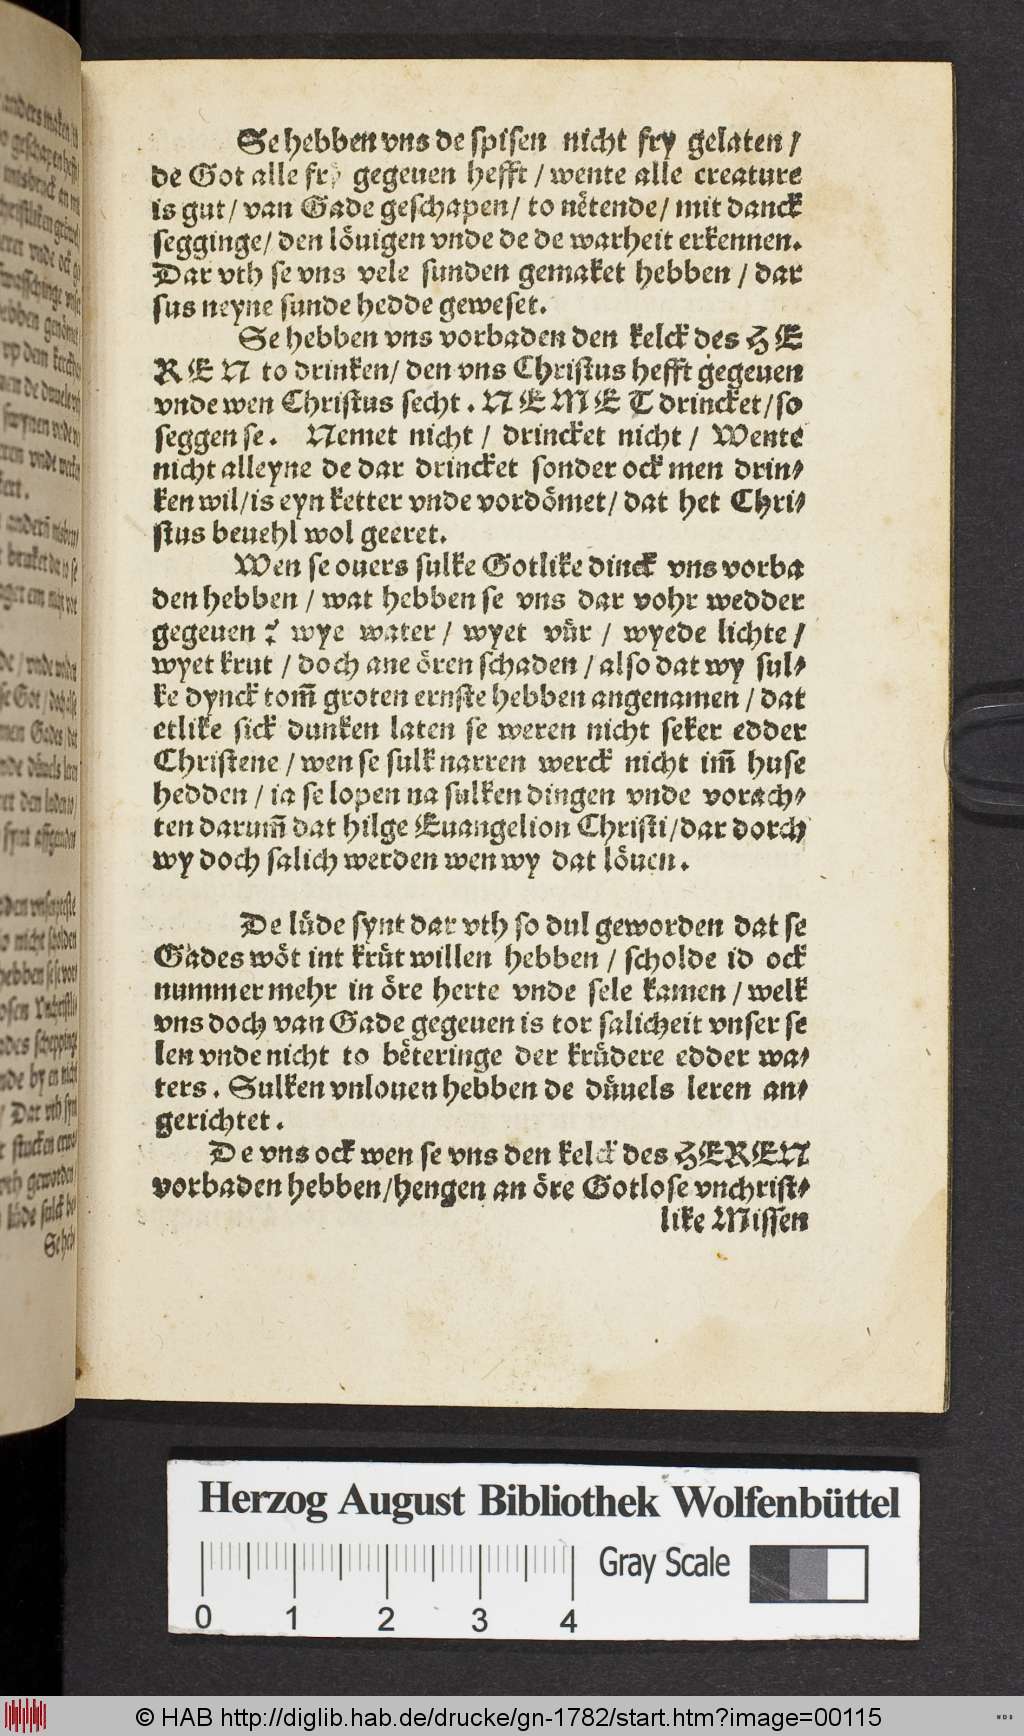 Se hebben vns de spisen nicht fry gelaten /
de Got alle fry gegeuen hefft / wente alle creature
is gut / van Gade geschapen / to nëtende / mit danck
segginge / den löuigen vnde de de warheit erkennen.
Dar vth se vns vele sunden gemaket hebben / dar
sus neyne sunde hedde geweset.
Se hebben vns vorbaden den kelck des HE
REN to drinken / den vns Christus hefft gegeuen
vnde wen Christus secht. NEMET drincket / so
seggen se. Nemet nicht / drincket nicht / Wente
nicht alleyne de dar drincket sonder ock men drin⸗
ken wil / is eyn ketter vnde vordömet / dat het Chri⸗
stus beuehl wol geeret.
Wen se ouers sulke Gotlike dinck vns vorba
den hebben / wat hebben se vns dar vohr wedder
gegeuen ? wye water / wyet vür / wyede lichte /
wyet krut / doch ane ören schaden / also dat wy sul⸗
ke dynck tom̄ groten ernste hebben angenamen / dat
etlike sick dunken laten se weren nicht seker edder
Christene / wen se sulk narren werck nicht im̄ huse
hedden / ia se lopen na sulken dingen vnde vorach⸗
ten darum̄ dat hilge Euangelion Christi / dar dorch
wy doch salich werden wen wy dat löuen.
De lüde synt dar vth so dul geworden dat se
Gades wöt int krüt willen hebben / scholde id ock
nummer mehr in öre herte vnde sele kamen / welk
vns doch van Gade gegeuen is tor salicheit vnser se
len vnde nicht to bëteringe der krüdere edder wa⸗
ters. Sulken vnlouen hebben de düuels leren an⸗
gerichtet.
De vns ock wen se vns den kelck des HEREN
vorbaden hebben / hengen an öre Gotlose vnchrist⸗
like Missen
Herzog August Bibliothek Wolfenbüttel
Gray Scale
0 1 2 3 4
© HAB http://diglib.hab.de/drucke/gn-1782/start.htm?image=00115